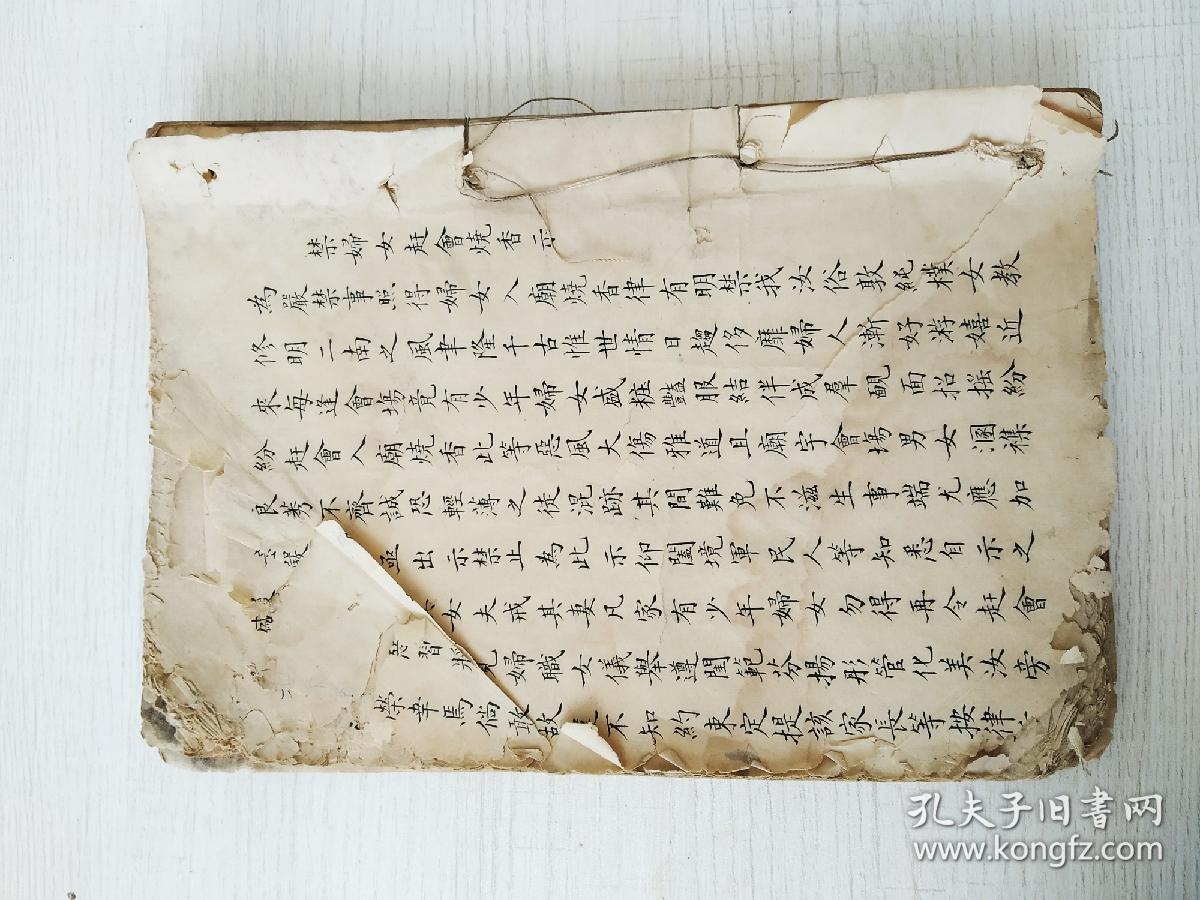 禁婦女赶會燒香示
為嚴禁事照得婦女入廟燒香律有明禁我汝俗敦純樸女教
修明二南之風聿隆千古惟世情日趨侈靡婦人漸好游嬉近
來每逢會塲竟有少年婦女盛粧豔服結伴成羣靦面招摇紛
紛赶會入廟燒香此等惡風大傷雅道且廟宇會塲男女溷襍
良莠不齊誠恐輕薄之徒混跡其間難免不滋生事端尤應加
亟出示禁止為此示仰闔境軍民人等知悉自示之
女夫戒其妻凡家有少年婦女勿得再令赶會
惡習將見婦職女儀舉遵閨範芬揚彤管化美汝旁
榮幸焉倘敢故不知約束定提該家長等按律
孔夫子旧书网
www.kongfz.com